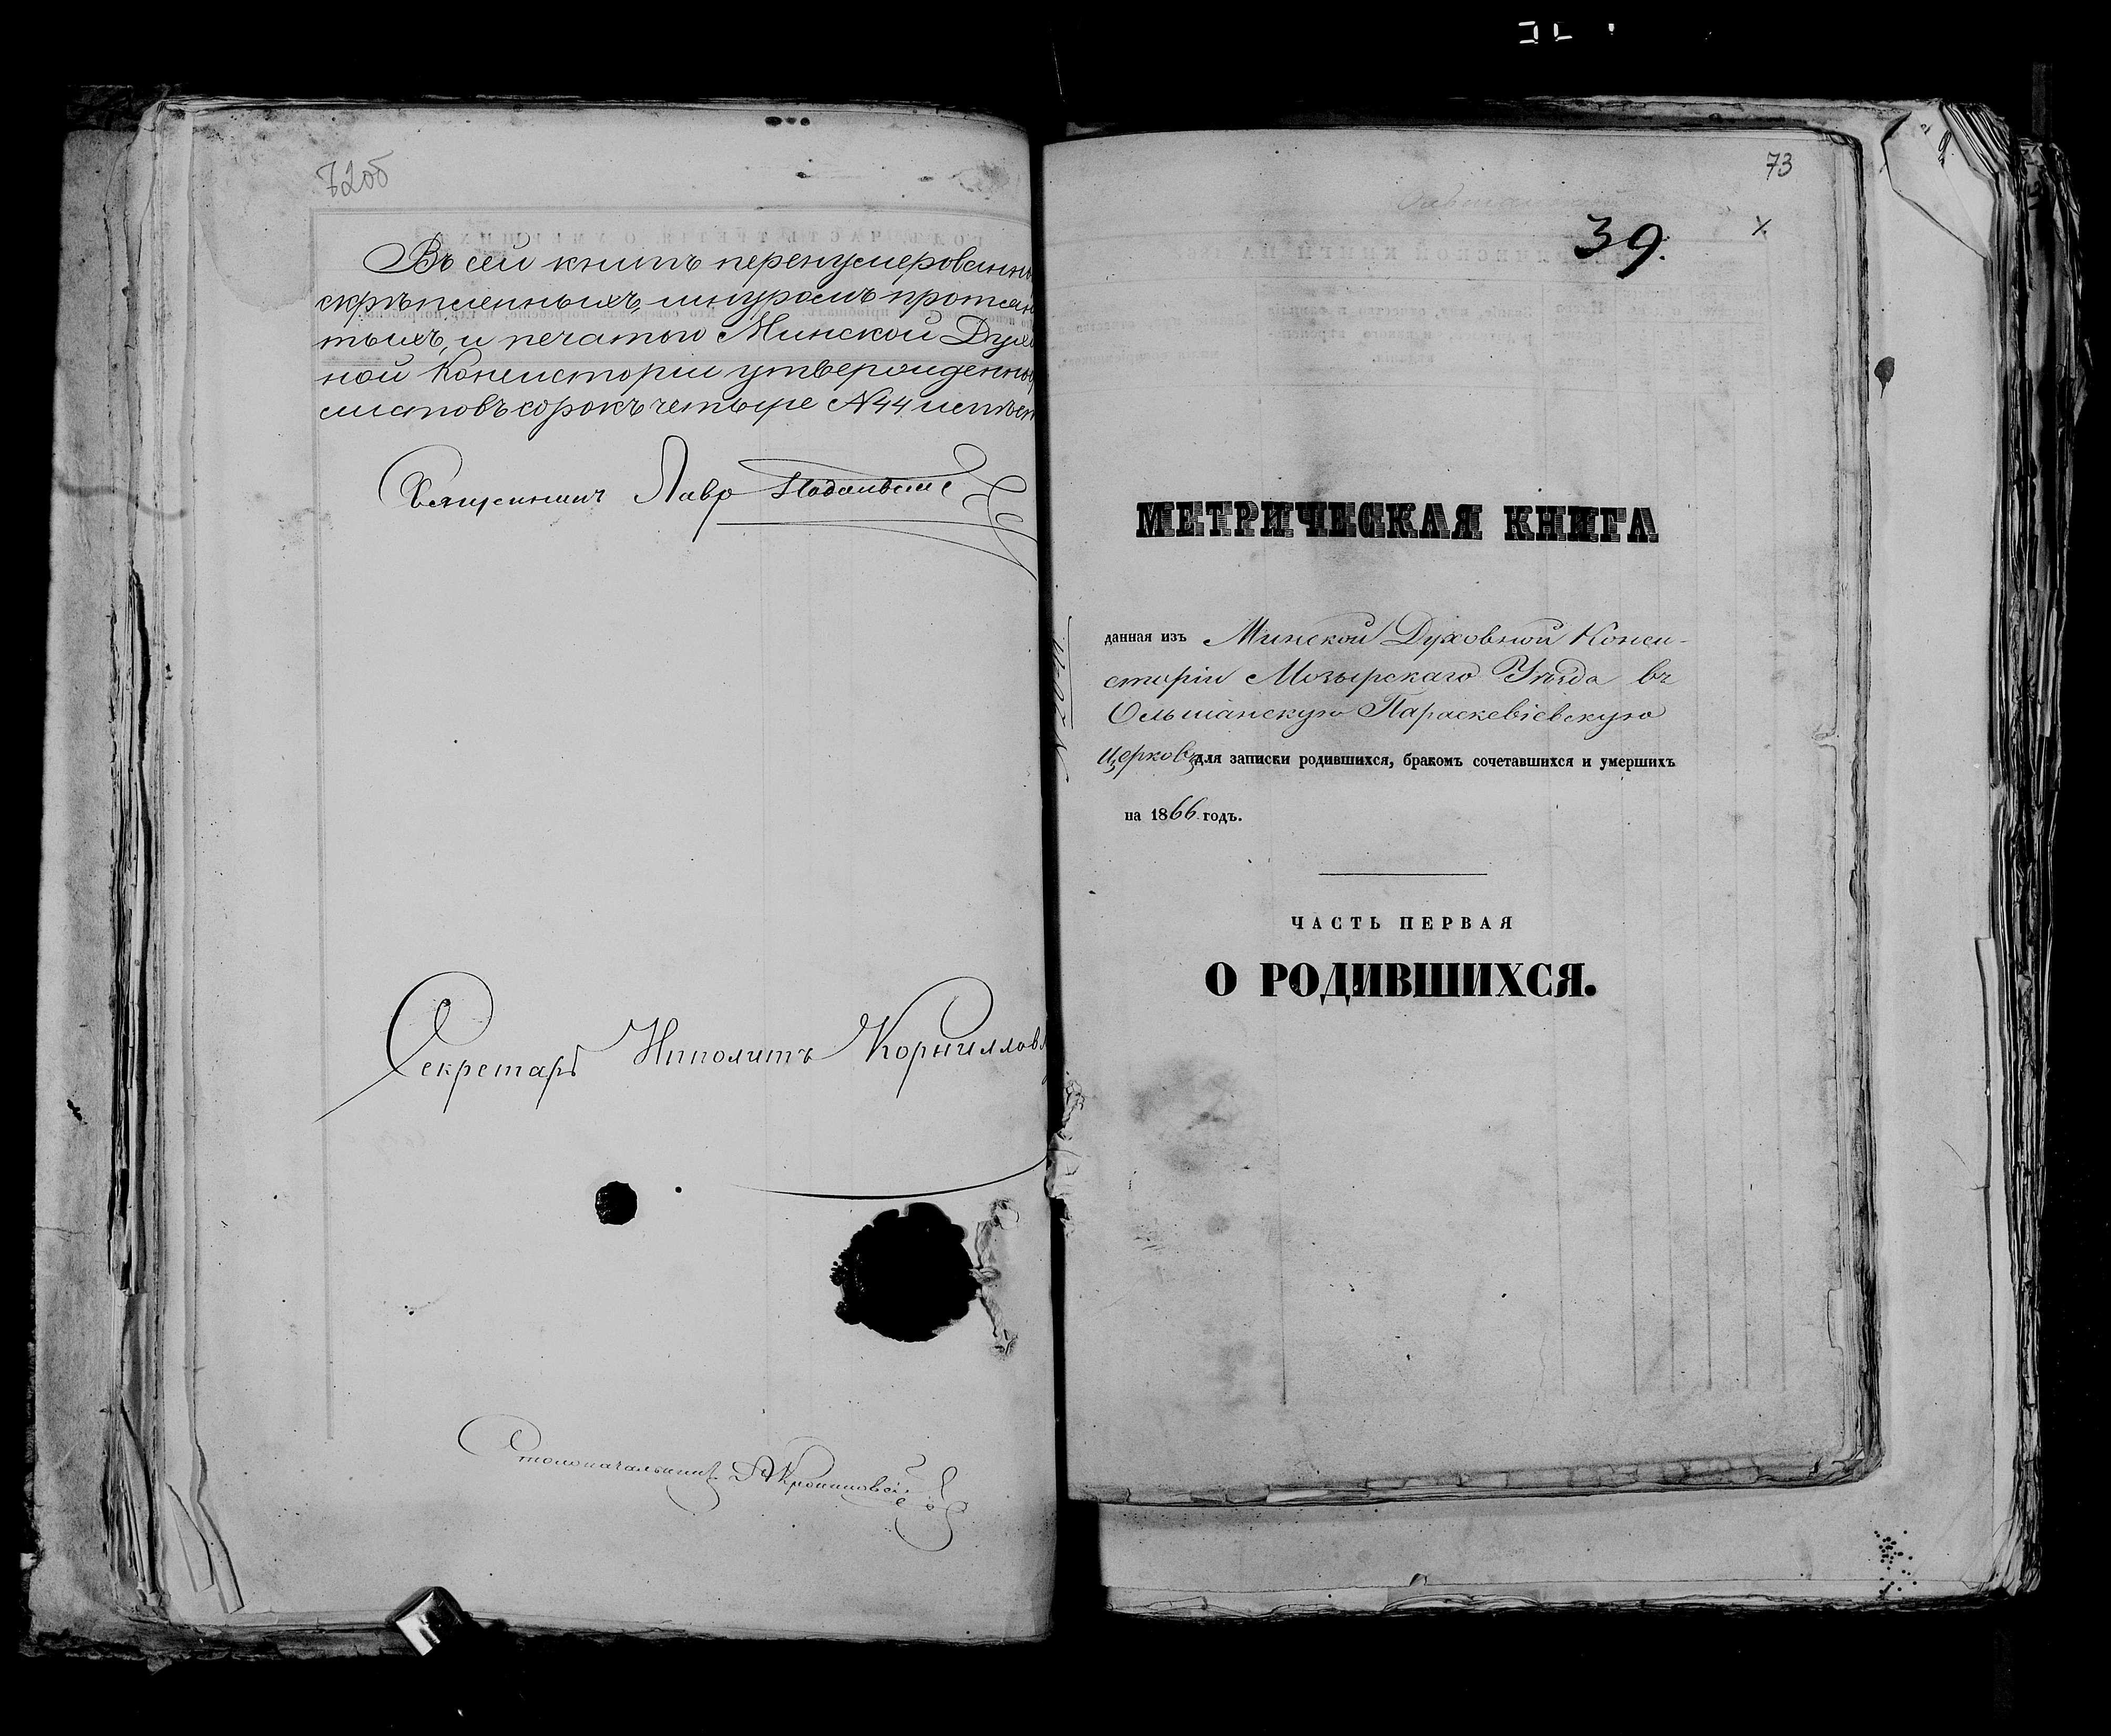 72об
Въ сей книгѣ перенумерованны
скрѣпленныхъ, шнуромъ протян
тыхъ, и печатью Минской Духо
ной Консисторіи утвержденны
листовъ сорокъ четыре N44
Священникъ Лавр
Секретарь Ипполитъ Корнилов
Столоначальникъ
73
39.
МЕТРИЧЕСКАЯ КНИГА
данная изъ Минской Духовной Конси-
сторіи Мозырскаго Уѣзда въ
Ольшанскую Параскевіевскую
Церковь для записки родившихся, бракомъ сочетавшихся и умершихъ
на 1866 годъ.
ЧАСТЬ ПЕРВАЯ
О РОДИВШИХСЯ.